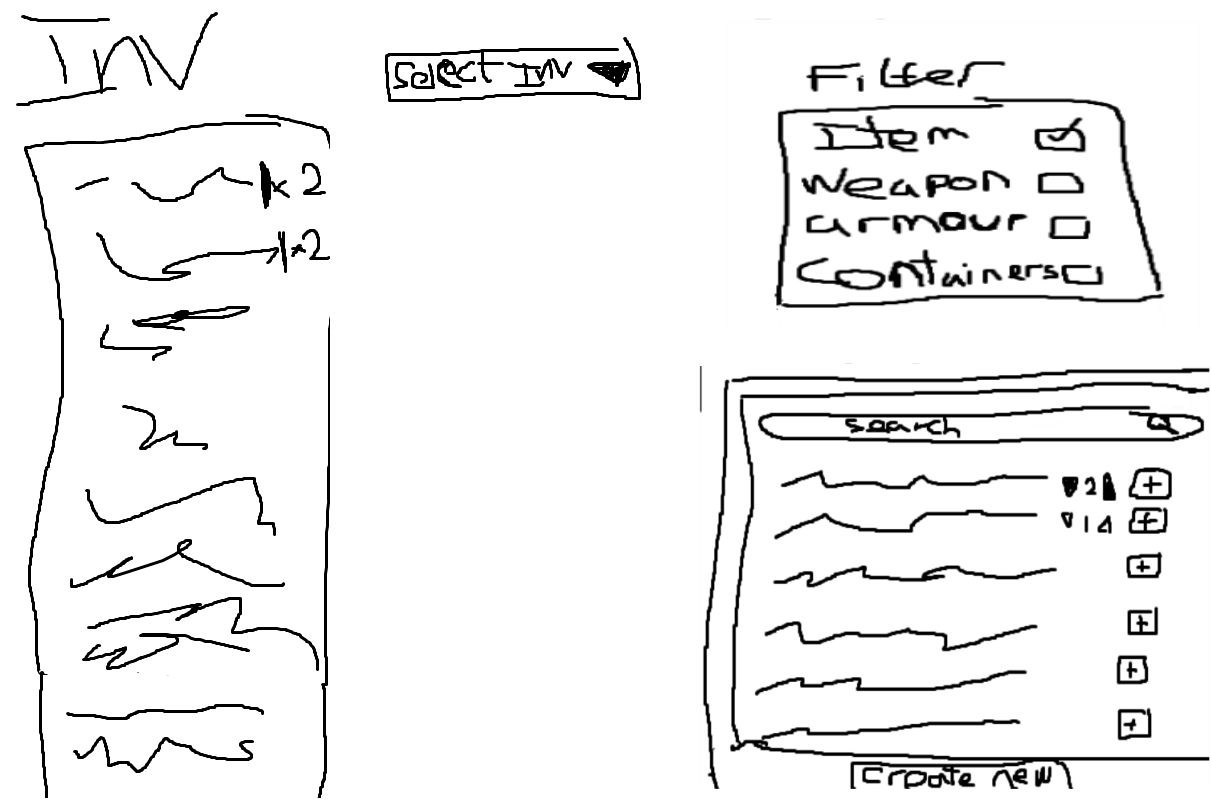 Inv
Select Inv
Filter
Item
Weapon
armour
Containers
x 2
x2
search
2
+
1
+
+
+
+
+
Create new